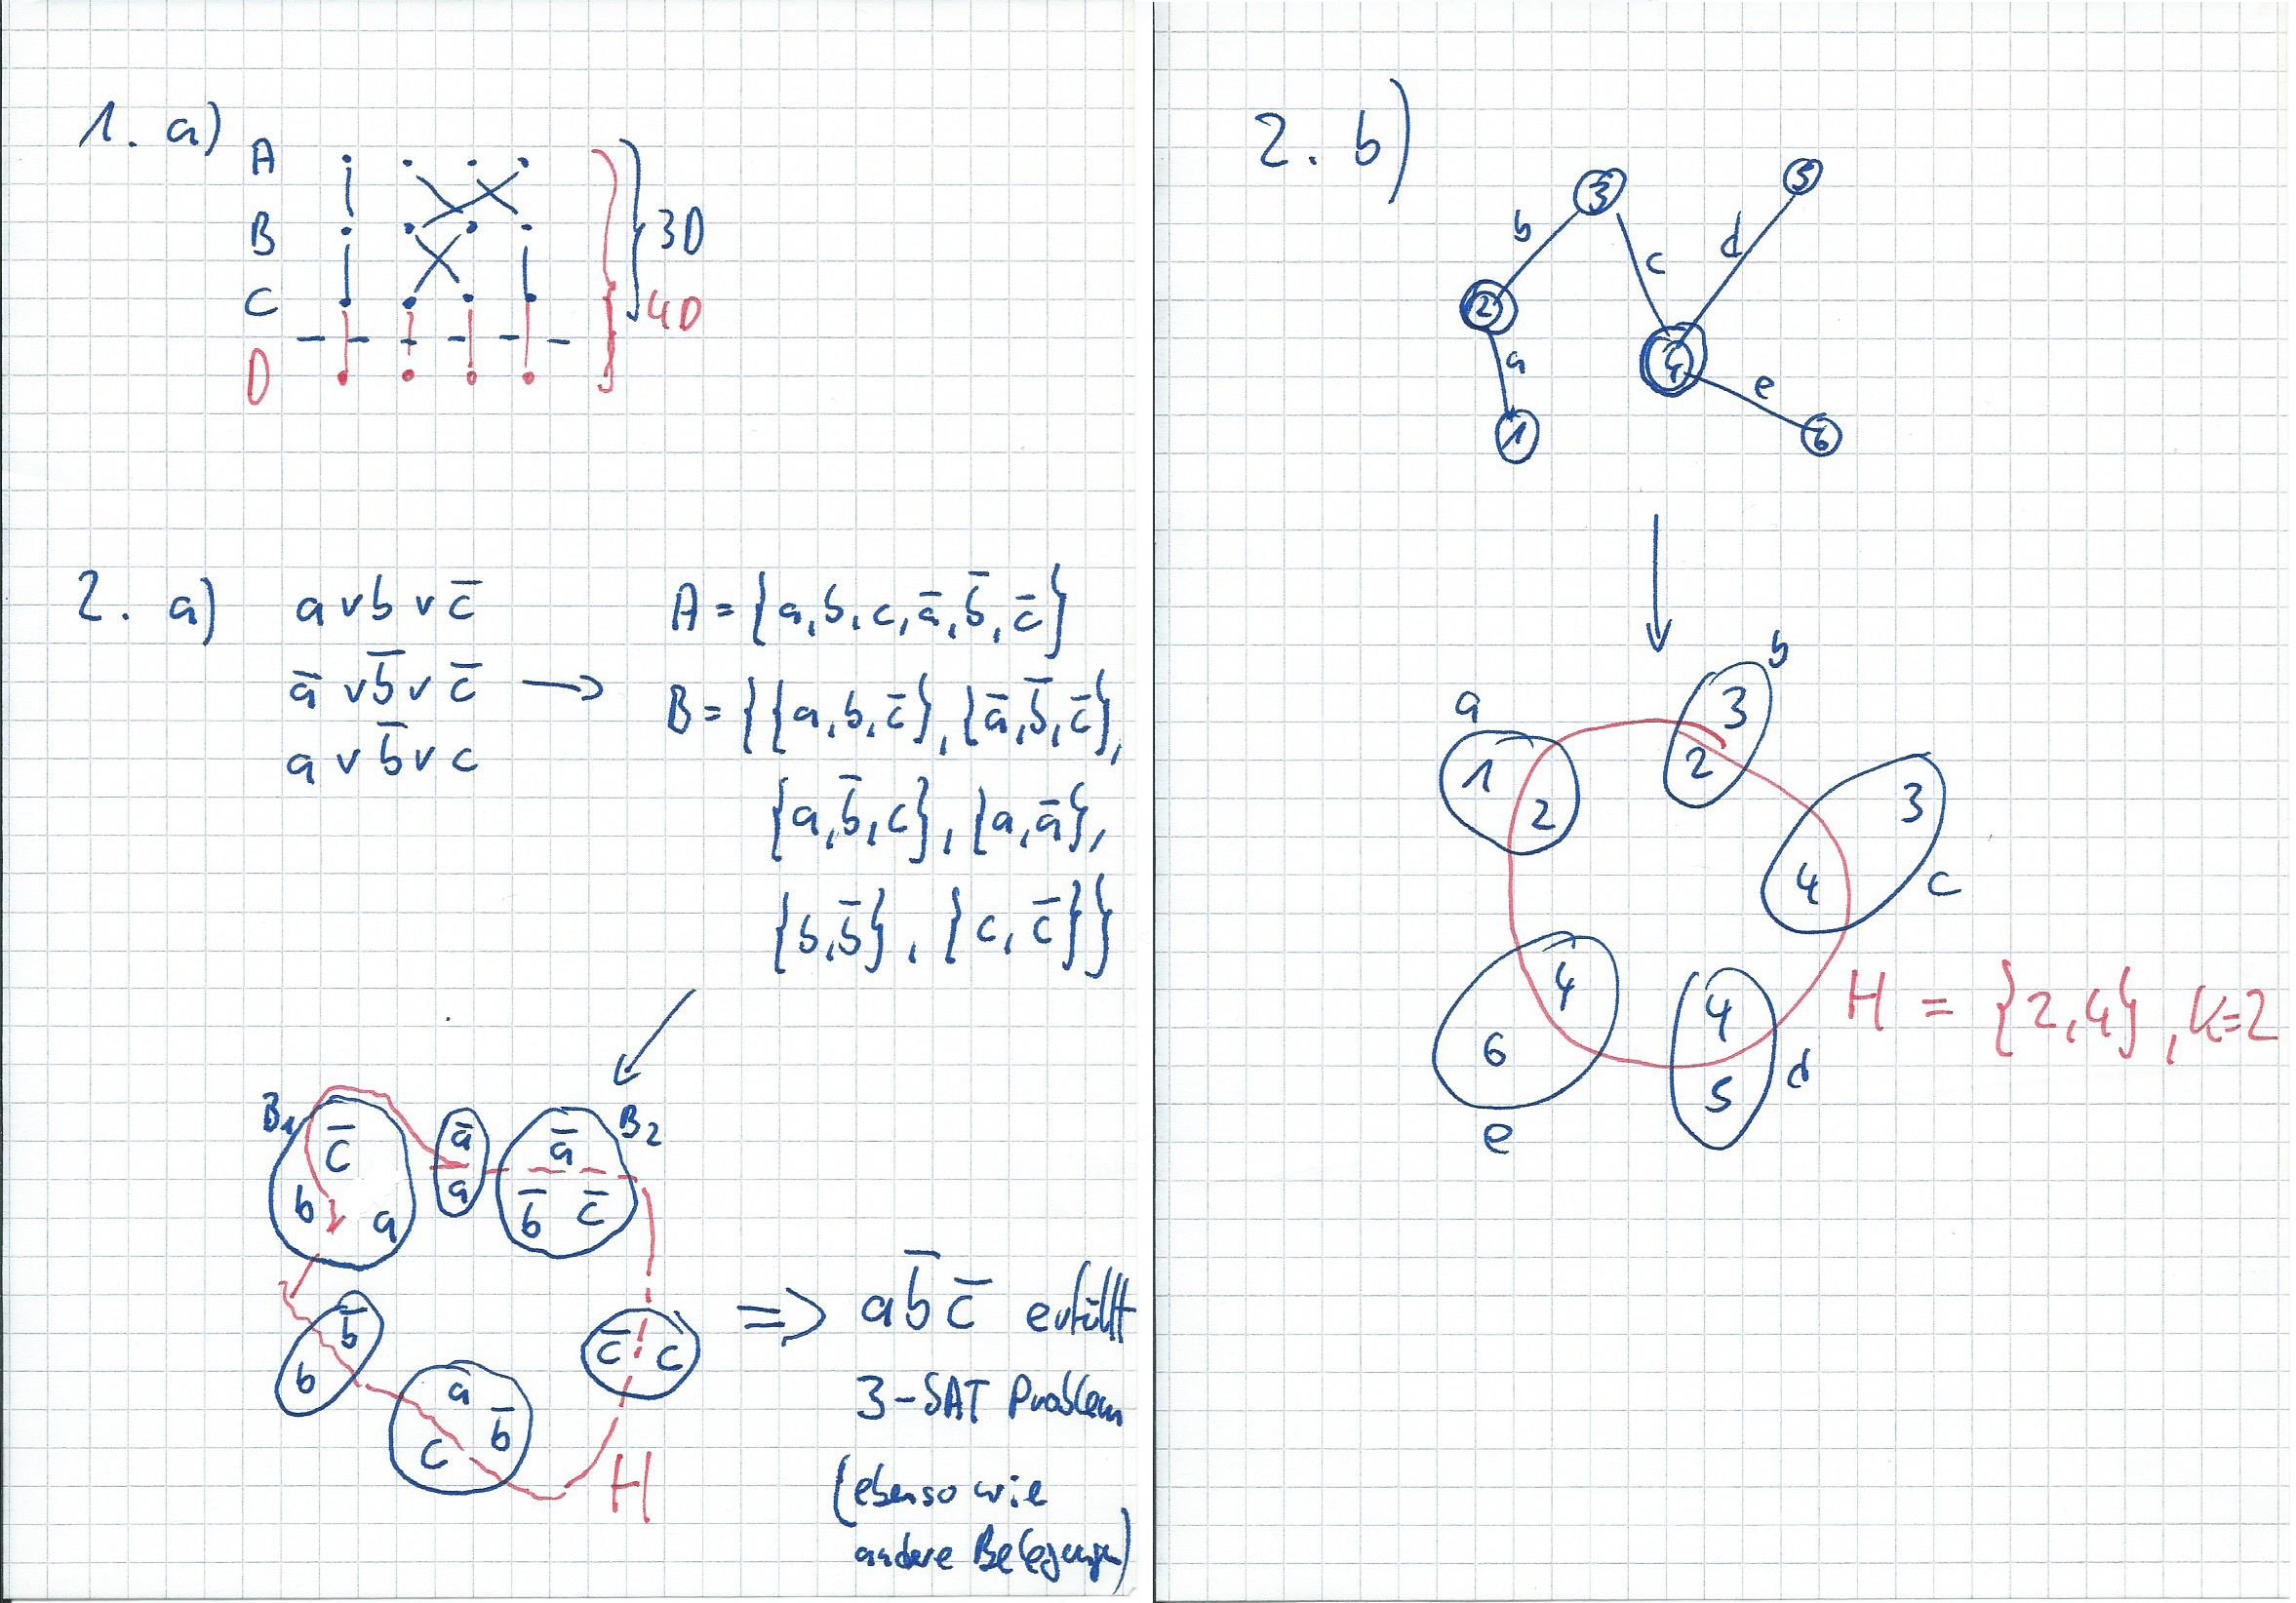 1. a)
A
B
C
D
3D
4D
2. a)
a ∨ b ∨ c̄
ā ∨ b̄ ∨ c̄
a ∨ b̄ ∨ c
A = {a, b, c, ā, b̄, c̄}
B = {{a, b, c̄}, {ā, b̄, c̄},
{a, b̄, c}, {a, ā},
{b, b̄}, {c, c̄}}
B₁
c̄
b a
ā
a
B₂
ā
b̄ c̄
b̄
b
a
b̄
c
c̄ c
H
=> a b̄ c̄ erfüllt
3-SAT Problem
(ebenso wie
andere Belegungen)
2. b)
3
5
b
c
d
2
4
a
e
1
6
b
3
2
a
1
2
3
4
c
4
6
e
4
5
d
H = {2,4}, k=2